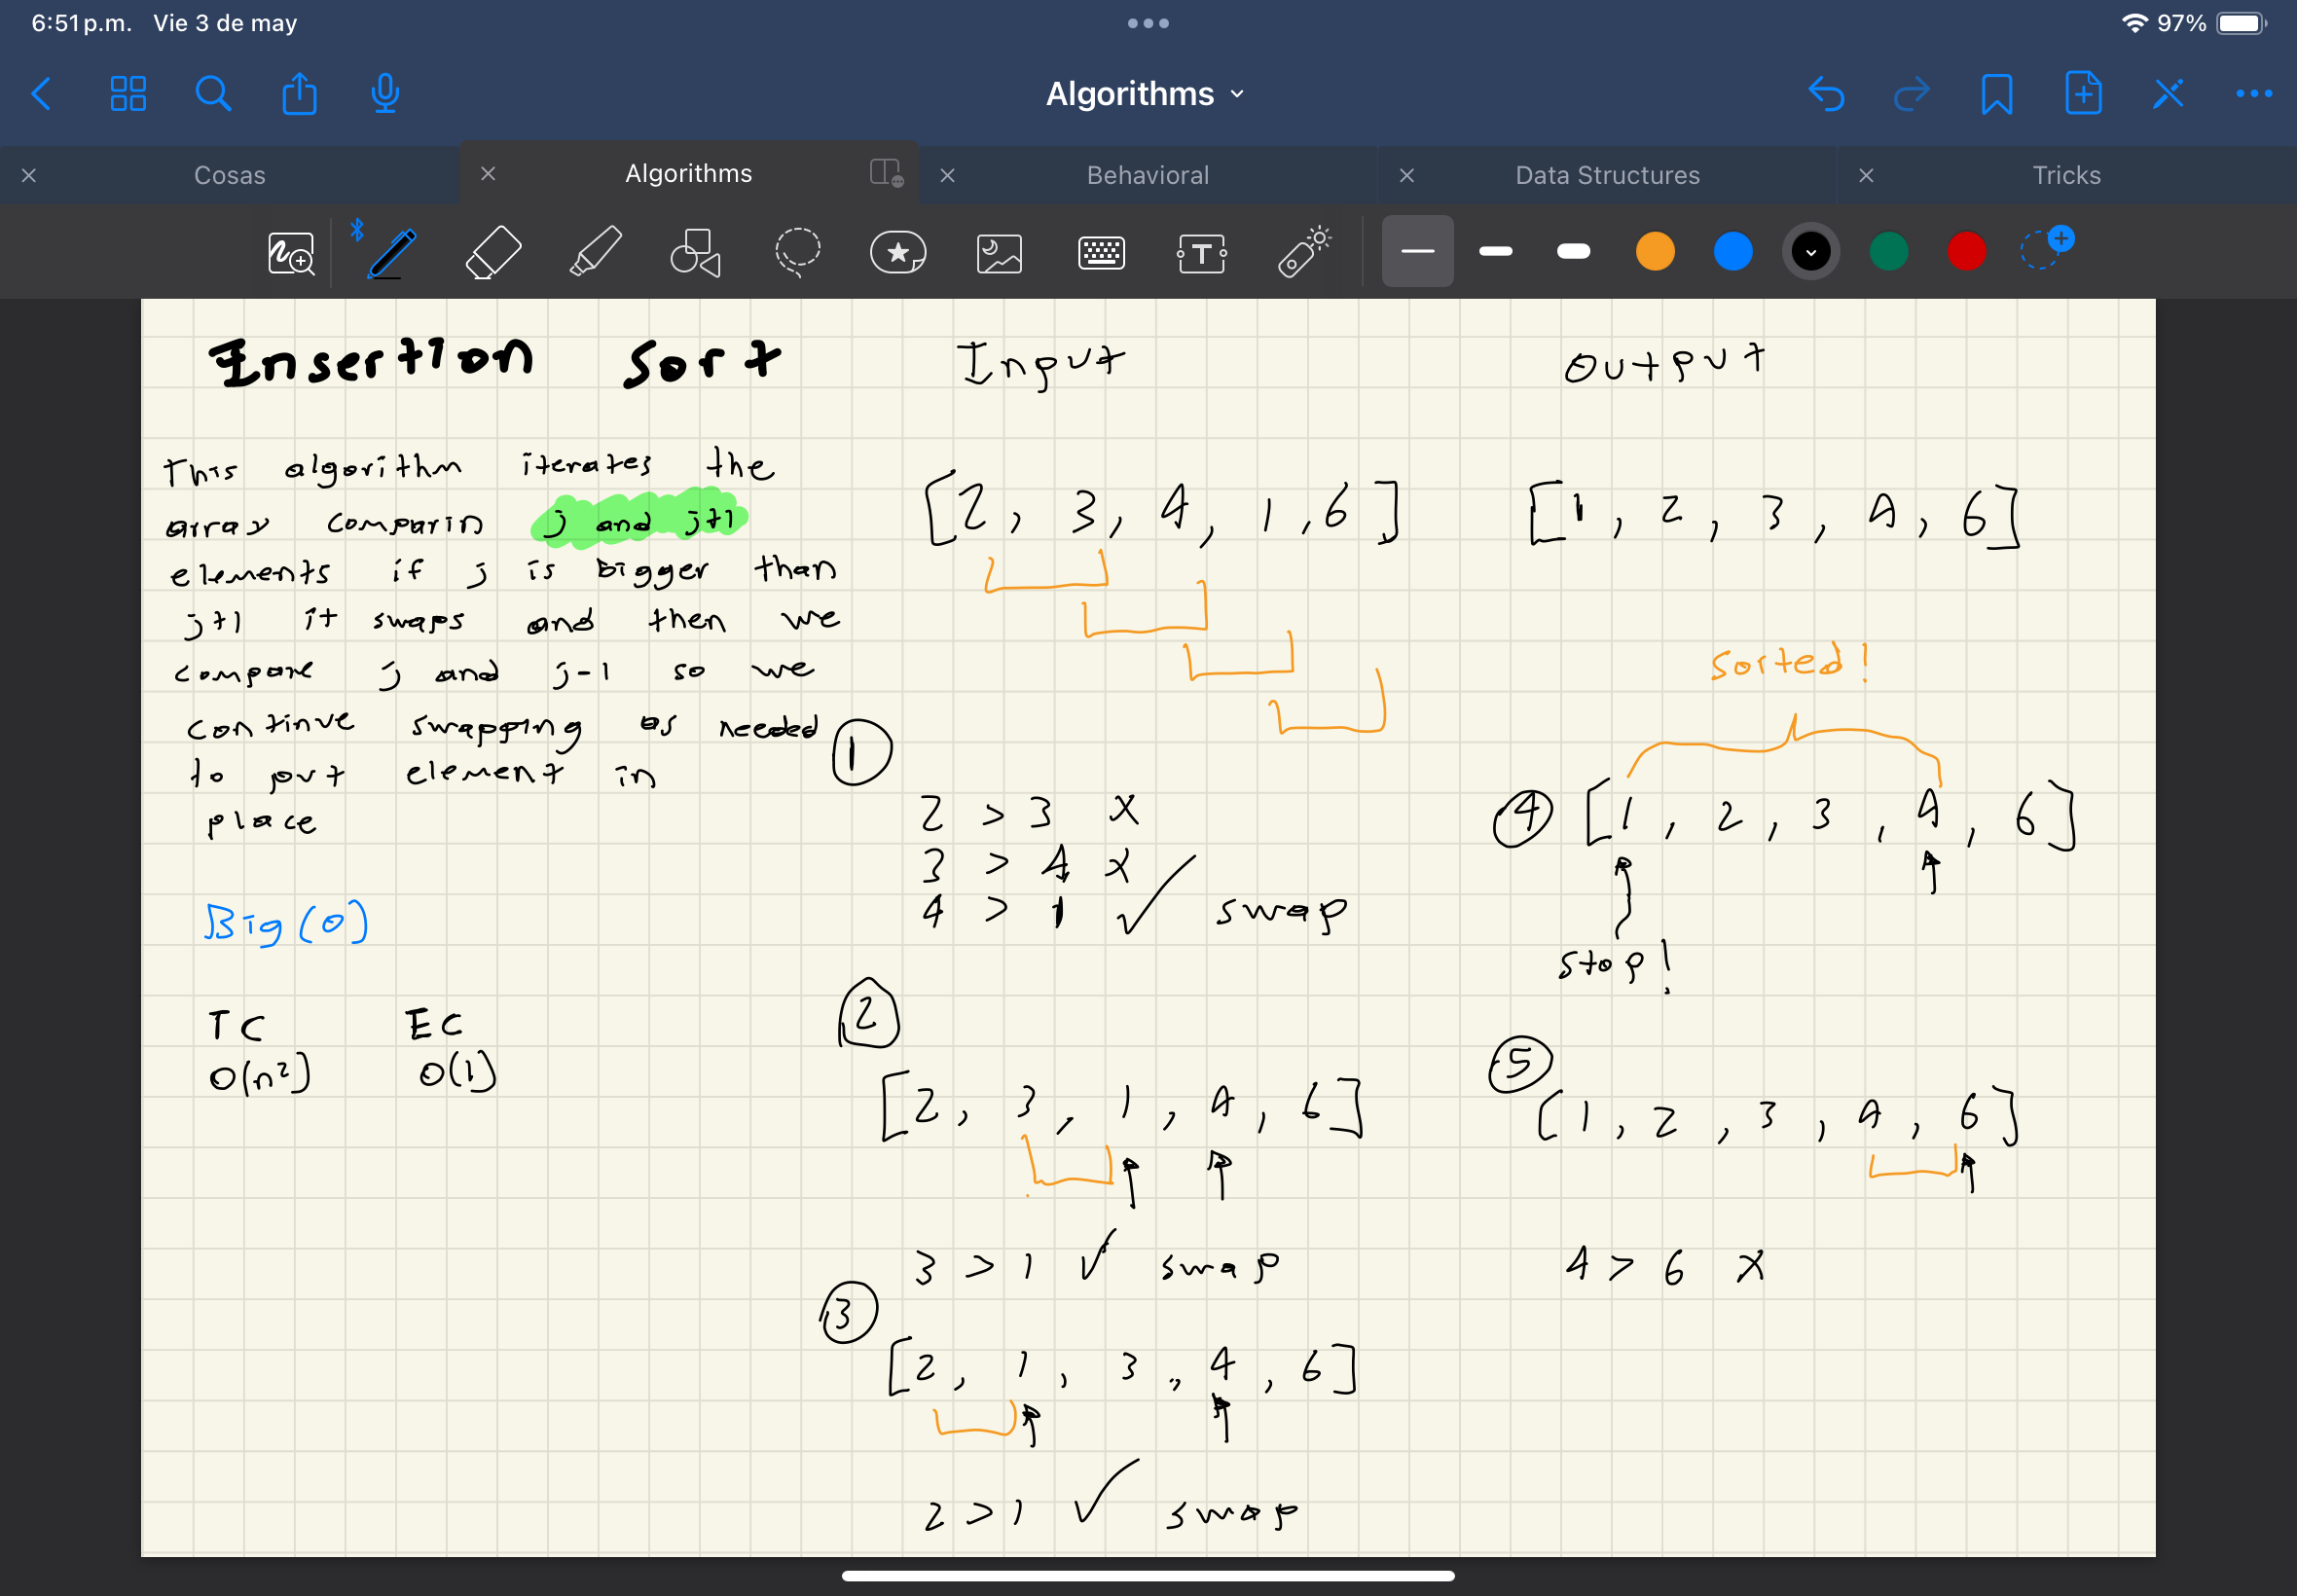 6:51 p.m. Vie 3 de may
97%
Algorithms
Cosas
Algorithms
Behavioral
Data Structures
Tricks
Insertion Sort
This algorithm iterates the
array comparin j and j+1
elements if j is bigger than
j+1 it swaps and then we
compare j and j-1 so we
continue swapping as needed
to put element in
place
Big(O)
TC EC
O(n²) O(1)
Input
[2, 3, 4, 1, 6]
1
2 > 3 X
3 > 4 X
4 > 1 ✓ swap
2
[2, 3, 1, 4, 6]
3 > 1 ✓ swap
3
[2, 1, 3, 4, 6]
2 > 1 ✓ swap
Output
[1, 2, 3, 4, 6]
sorted!
4 [1, 2, 3, 4, 6]
stop!
5
[1, 2, 3, 4, 6]
4 > 6 X